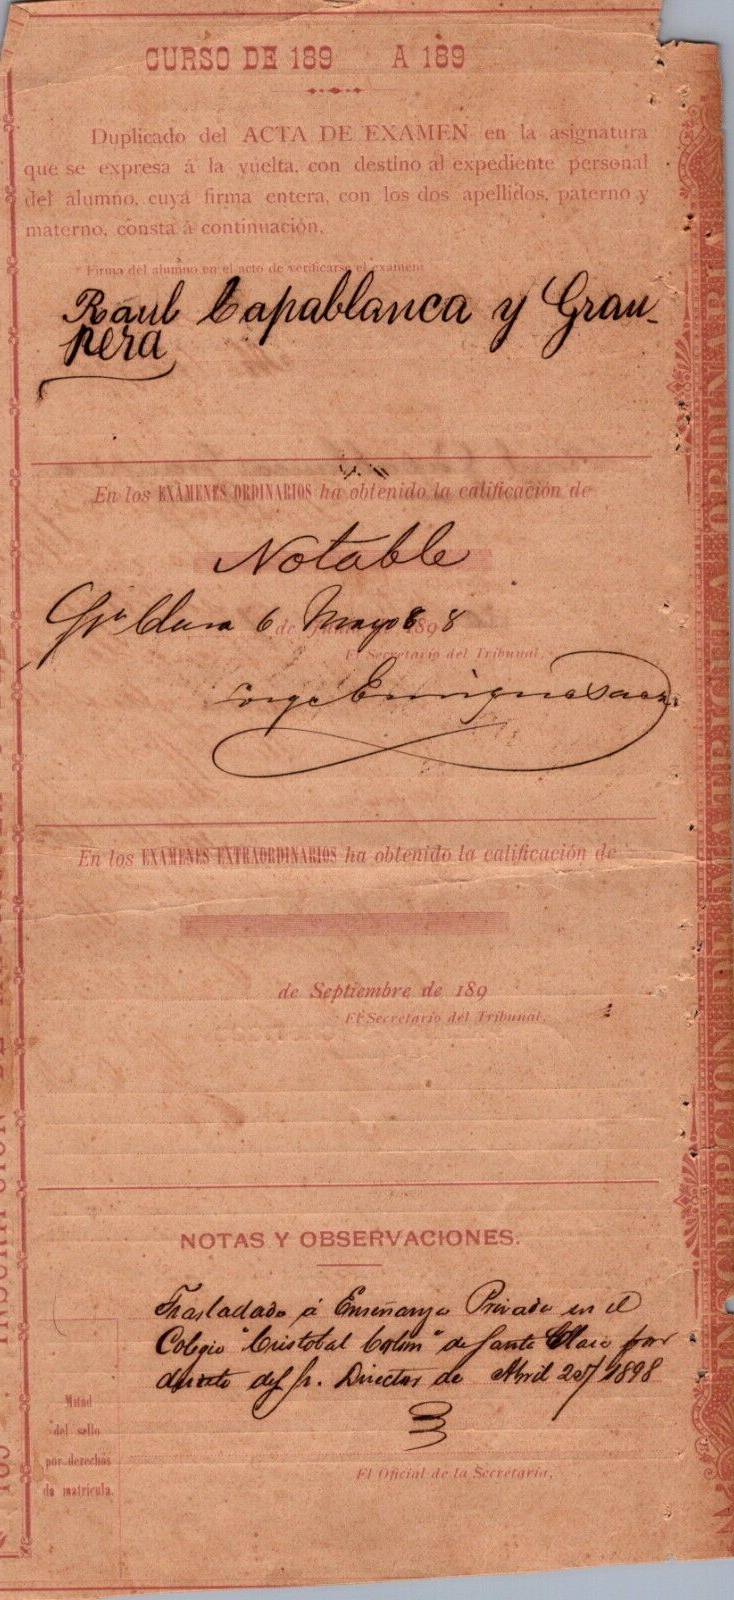 CURSO DE 189 A 189
Duplicado del ACTA DE EXAMEN en la asignatura
que se expresa á la vuelta, con destino al expediente personal
del alumno, cuya firma entera, con los dos apellidos, paterno y
materno, consta á continuación.
* Firma del alumno en el acto de verificarse el examen:
Raul Capablanca y Grau-
pera
En los EXÁMENES ORDINARIOS ha obtenido la calificación de
Notable
Sta Clara 6 de Mayo 898
El Secretario del Tribunal,
Jorge Enrique Saez
En los EXÁMENES EXTRAORDINARIOS ha obtenido la calificación de
de Septiembre de 189
El Secretario del Tribunal,
NOTAS Y OBSERVACIONES.
Trasladado á Enseñanza Privada en el
Colegio "Cristobal Colon" de Santa Clara por
del Sr. Director de Abril 25/1898
Mitad
del sello
por derechos
de matrícula.
El Oficial de la Secretaría,
INSCRIPCION DE MATRICULA ORDINARIA